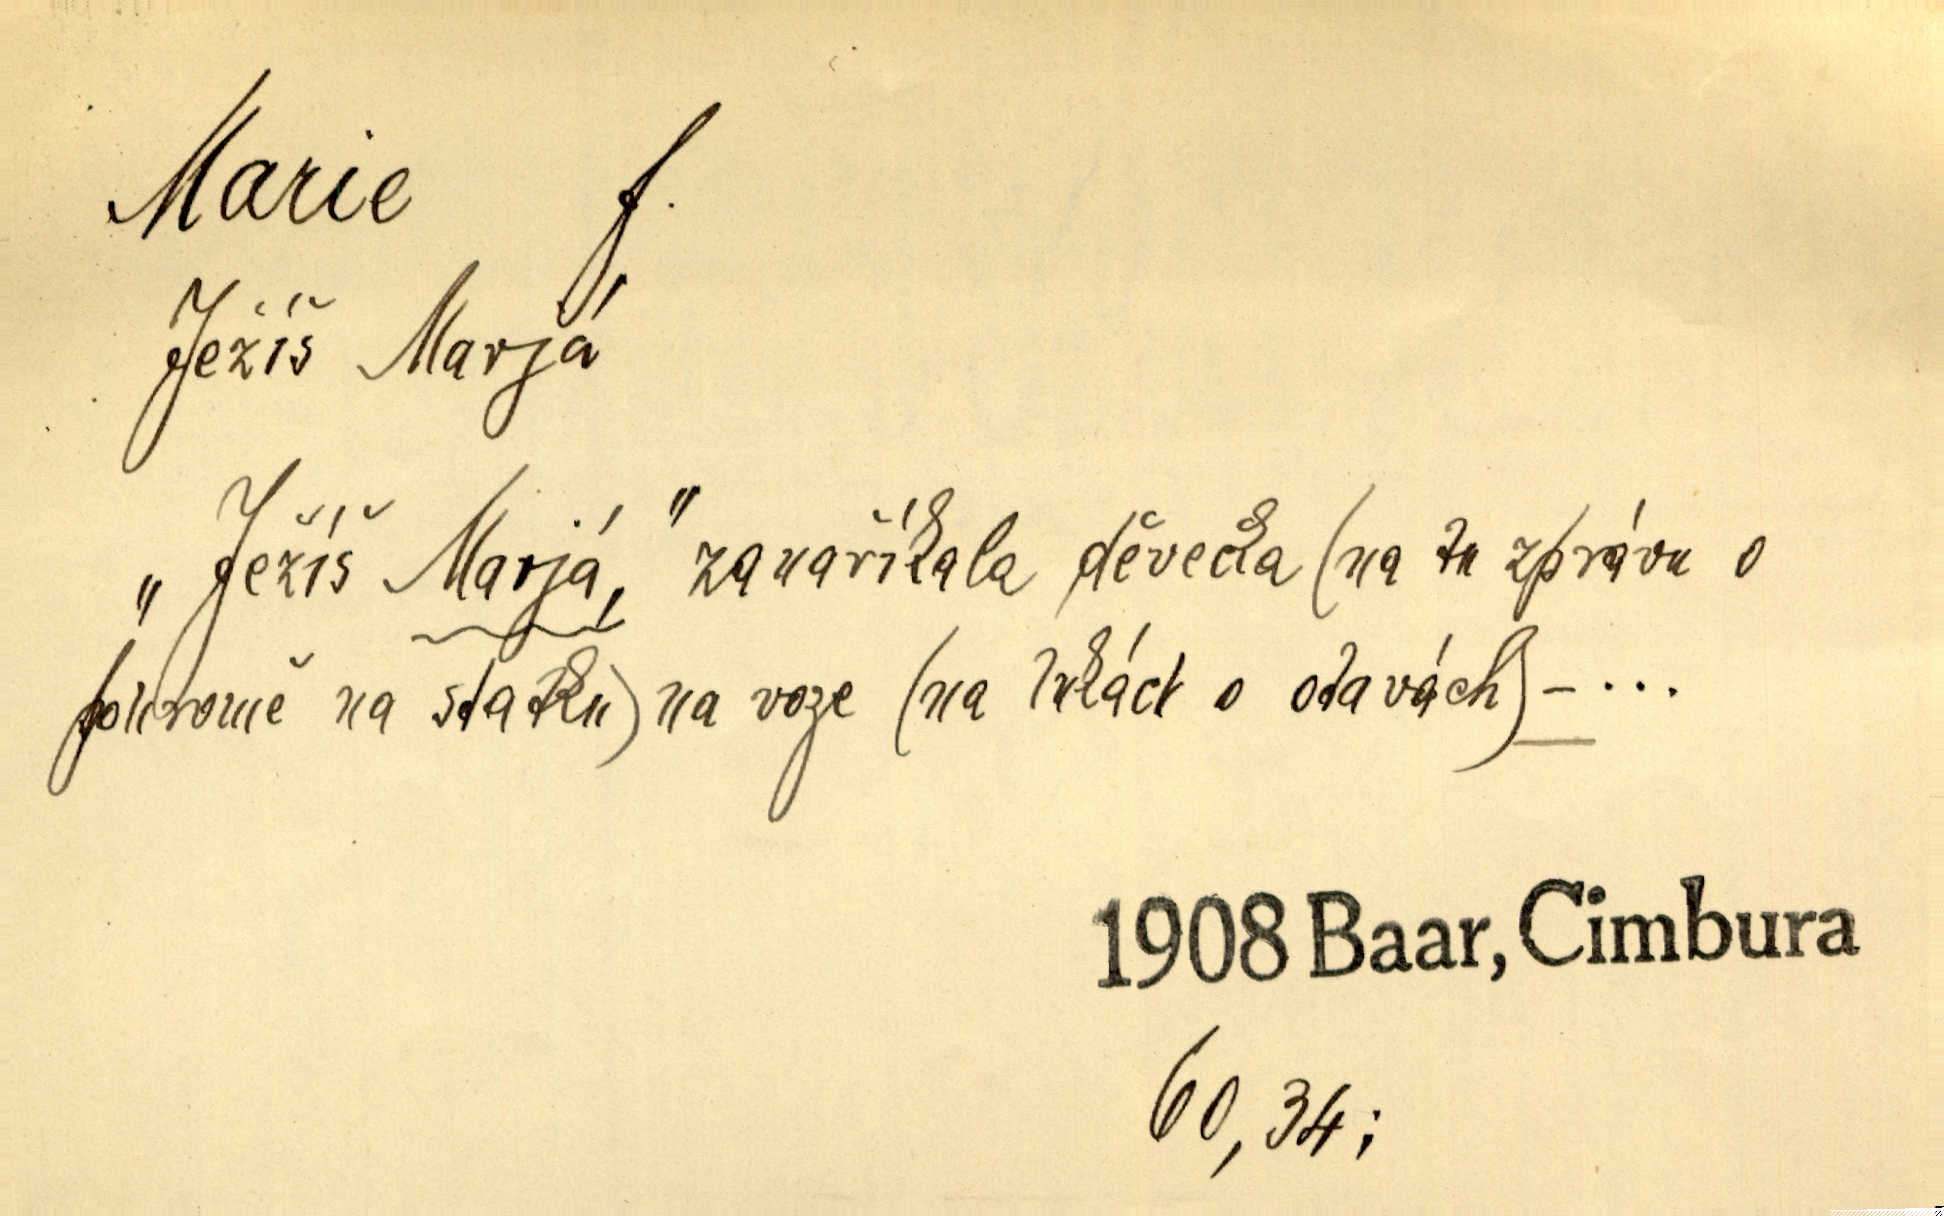 Marie f.
Ježíš Marjá
„Ježíš Marjá," zanaříkala děvečka (na tu zprávu o
pohromě na statku) na voze (na lukách o otavách) – ...
1908 Baar, Cimbura
60, 34;